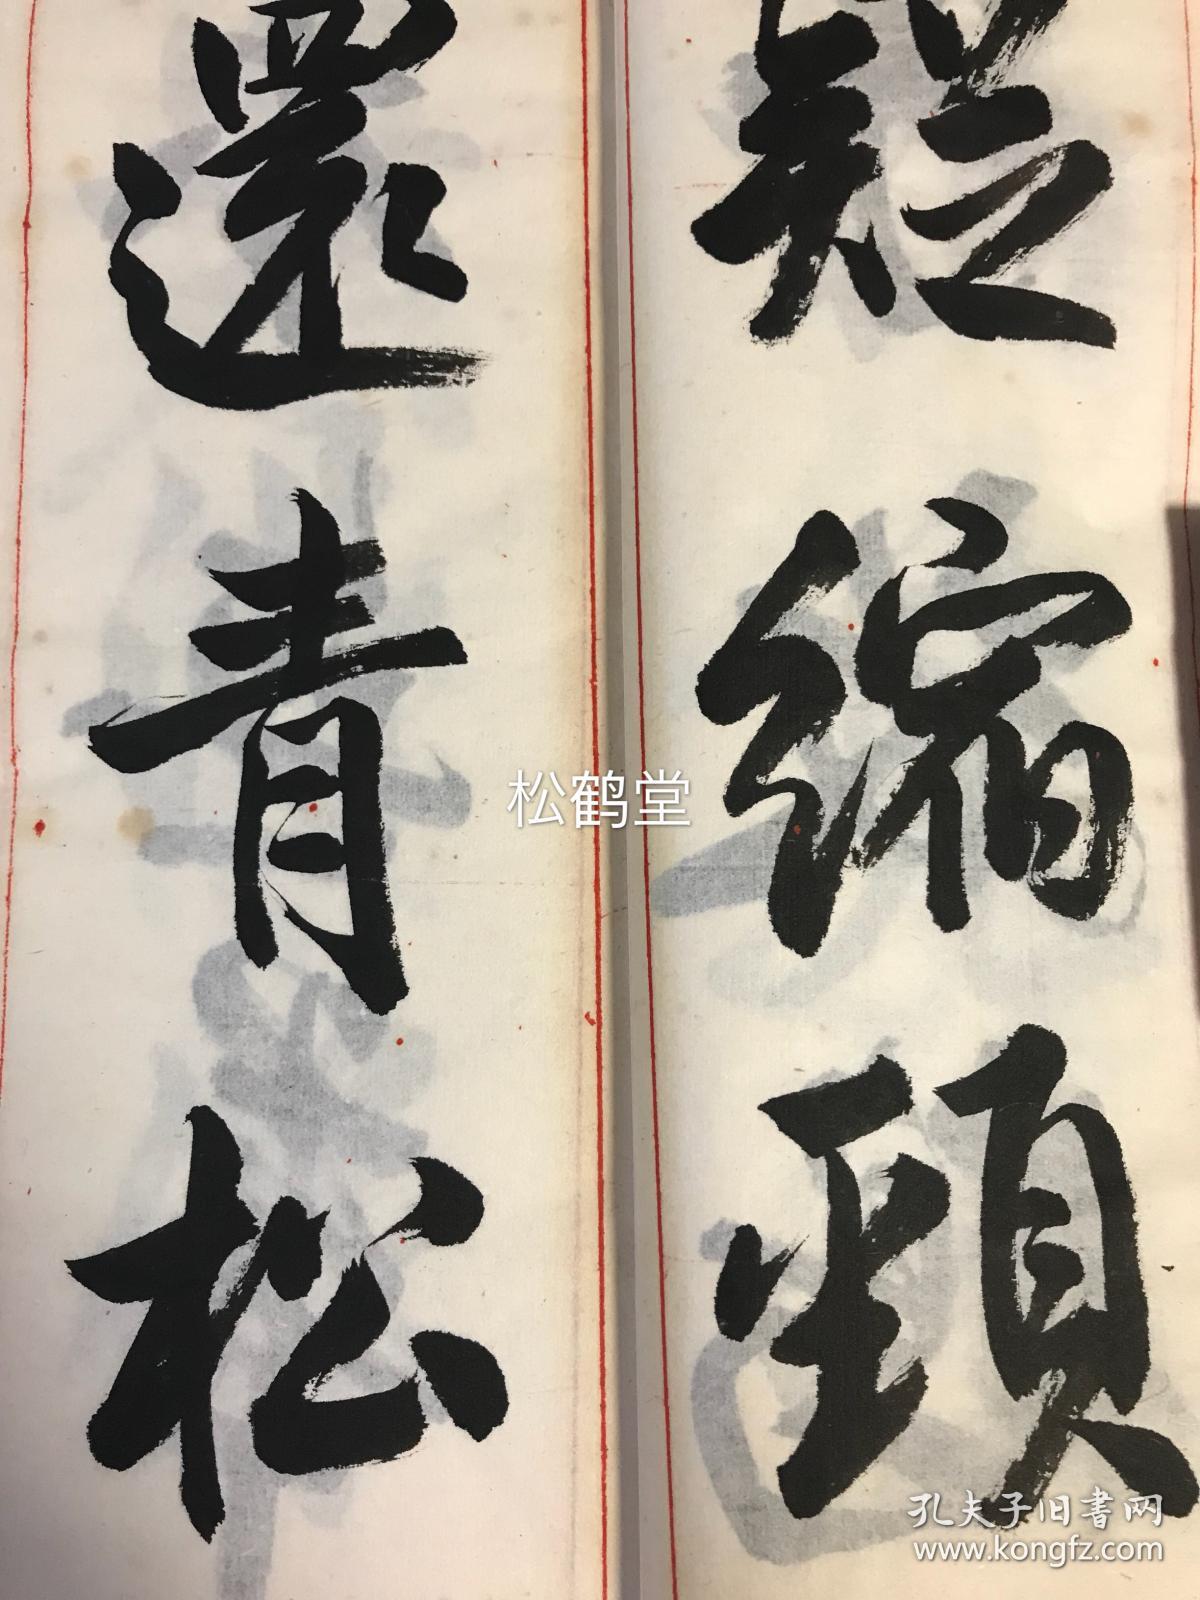 疑縮頸
還青松
松鹤堂
孔夫子旧书网
www.kongfz.com